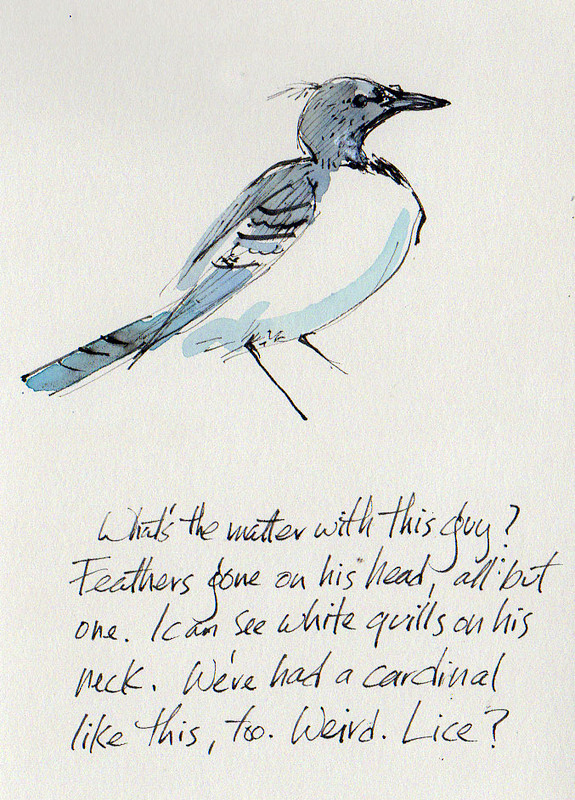 What's the matter with this guy?
Feathers gone on his head, all but
one. I can see white quills on his
neck. We've had a cardinal
like this, too. Weird. Lice?